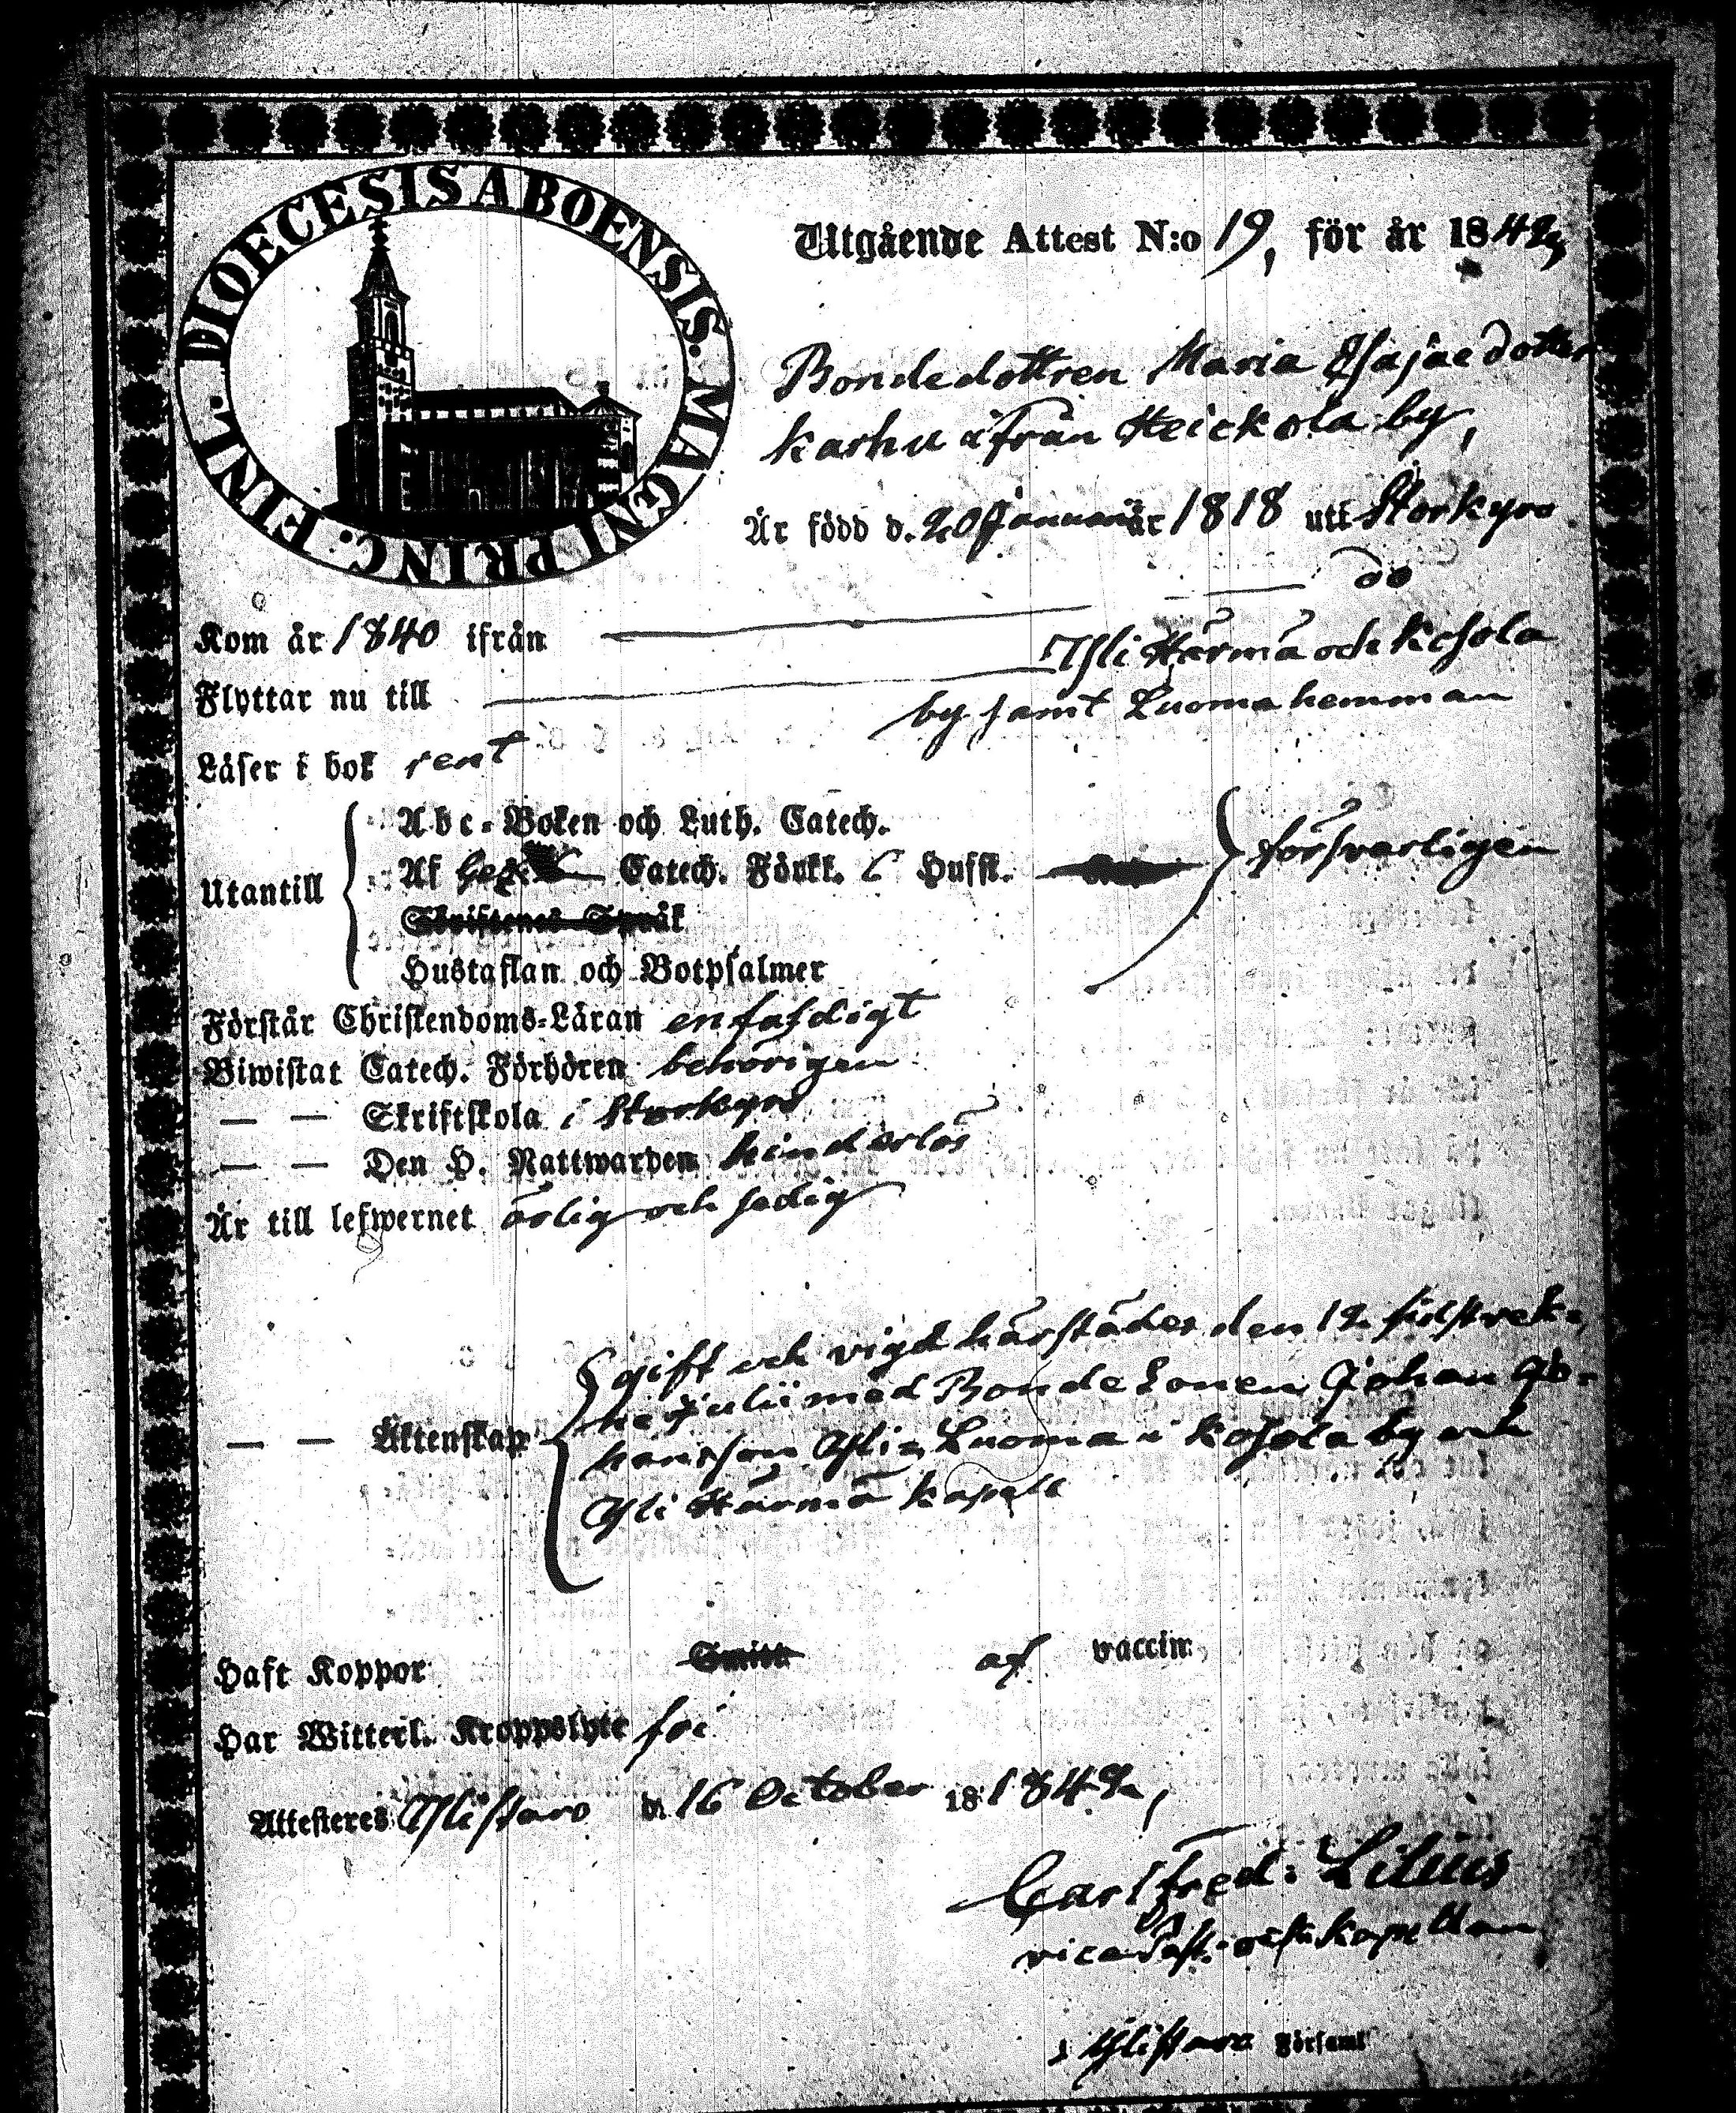 DIOECESIS ABOENSIS. MAGNI PRINC. FINL.
Utgående Attest N:o 19, för år 1842,
Bondedottren Maria Esajaedotter
Karhu ifrån Heickola by,
Är född d. 20 Januari år 1818 uti Storkyro
Kom år 1840 ifrån — do
Flyttar nu till — Ylihärmä och Kosola
by samt Luoma hemman
Läser i bok rent
Utantill
Abc-Boken och Luth. Catech.
Af Catech. Förkl. Husst.
Skriftenes Språk
Hustaflan och Botpsalmer
försvarligen
Förstår Christendoms-Läran enfaldigt
Biwistat Catech. Förhören behörigen
— — Skriftskola i Storkyro
— — Den H. Nattwarden hinderlös
Är till lefwernet ärlig och sedig
— — Äktenskap
gift och vigd härstädes den 12 sidstvek-
ne Julii med Bonde Sonen Johan Jo-
hansson Yli Luoma i Kosola by och
Yli Härmä kapell
Haft Koppor af vaccin.
Har Witterl. Kroppslyte fri
Attesteres Ylistaro d. 16 October 18 1842,
Carl Fred: Lilius
vice Past: och Kapellan
i Ylistaro Församl